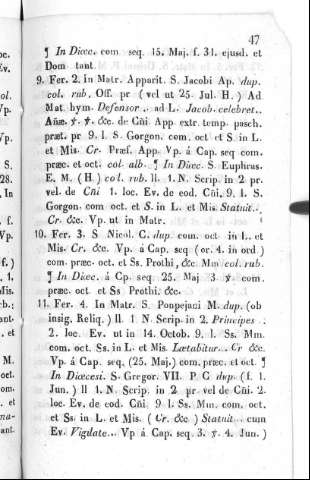 47
¶ In Diœc. com. seq. 15. Maj. f. 31. ejusd. et
Dom tant.
9. Fer. 2. In Matr. Apparit. S. Jacobi Ap. dup.
col. rub. Off. pr (vel ut 25. Jul. H.) Ad
Mat. hym. Defensor .. ad L. Jacob. celebret..
Añæ. ꝟ. ꝟ. &c. de Cñi App extr. temp. pasch.
præt. pr 9. l. S. Gorgon. com. oct et S. in L.
et Mis. Cr. Præf. App. Vp. á Cap. seq com.
præc. et oct. col. alb. ¶ In Diœc. S. Euphras.
E. M. (H.) col. rub. ll. 1. N. Scrip. in 2. pr.
vel. de Cñi 1. loc. Ev. de eod. Cñi, 9. l. S.
Gorgon. com oct. et S. in L. et Mis. Statuit..
Cr. &c. Vp. ut in Matr.
10. Fer. 3. S Nicol. C. dup com. oct. in L. et
Mis. Cr. &c. Vp. á Cap. seq (or. 4. in ord.)
com. præc- oct. et Ss. Prothi, &c. Mm col. rub.
¶ In Diœc. á Cp. seq. 25. Maj 3 ꝟ com.
præc. oct. et Ss Prothi, &c.
11. Fer. 4. In Matr. S. Ponpejaci M. dup. (ob
insig. Reliq.) ll. 1 N. Scrip. in 2. Principes ..
2. loc. Ev. ut in 14. Octob. 9. l. Ss. Mm.
com. oct. Ss. in L. et Mis. Lætabitur.. Cr &c.
Vp. á Cap. seq, (25. Maj.) com. præc. et oct. ¶
In Diœcesi. S. Gregor. VII. P. C dup. (f. 1.
Jun.) ll 1. N. Scrip. in 2 pr vel de Cñi. 2.
loc. Ev. de eod. Cñi 9. l. Ss. Mm. com. oct.
et Ss. in L. et Mis. (Cr. &c.) Statuit.. cum
Ev. Vigilate.. Vp á Cap. seq. 3. ꝟ. 4. Jun.)